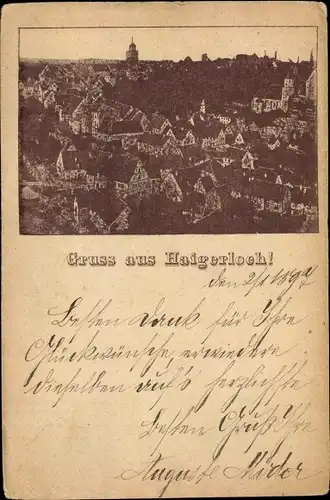 Gruss aus Haigerloch!
den 2/1 1897
Besten Dank für Ihre
Glückwünsche, erwiedere
dieselben auf's herzlichste
Besten Gruß Ihre
Auguste Mäder